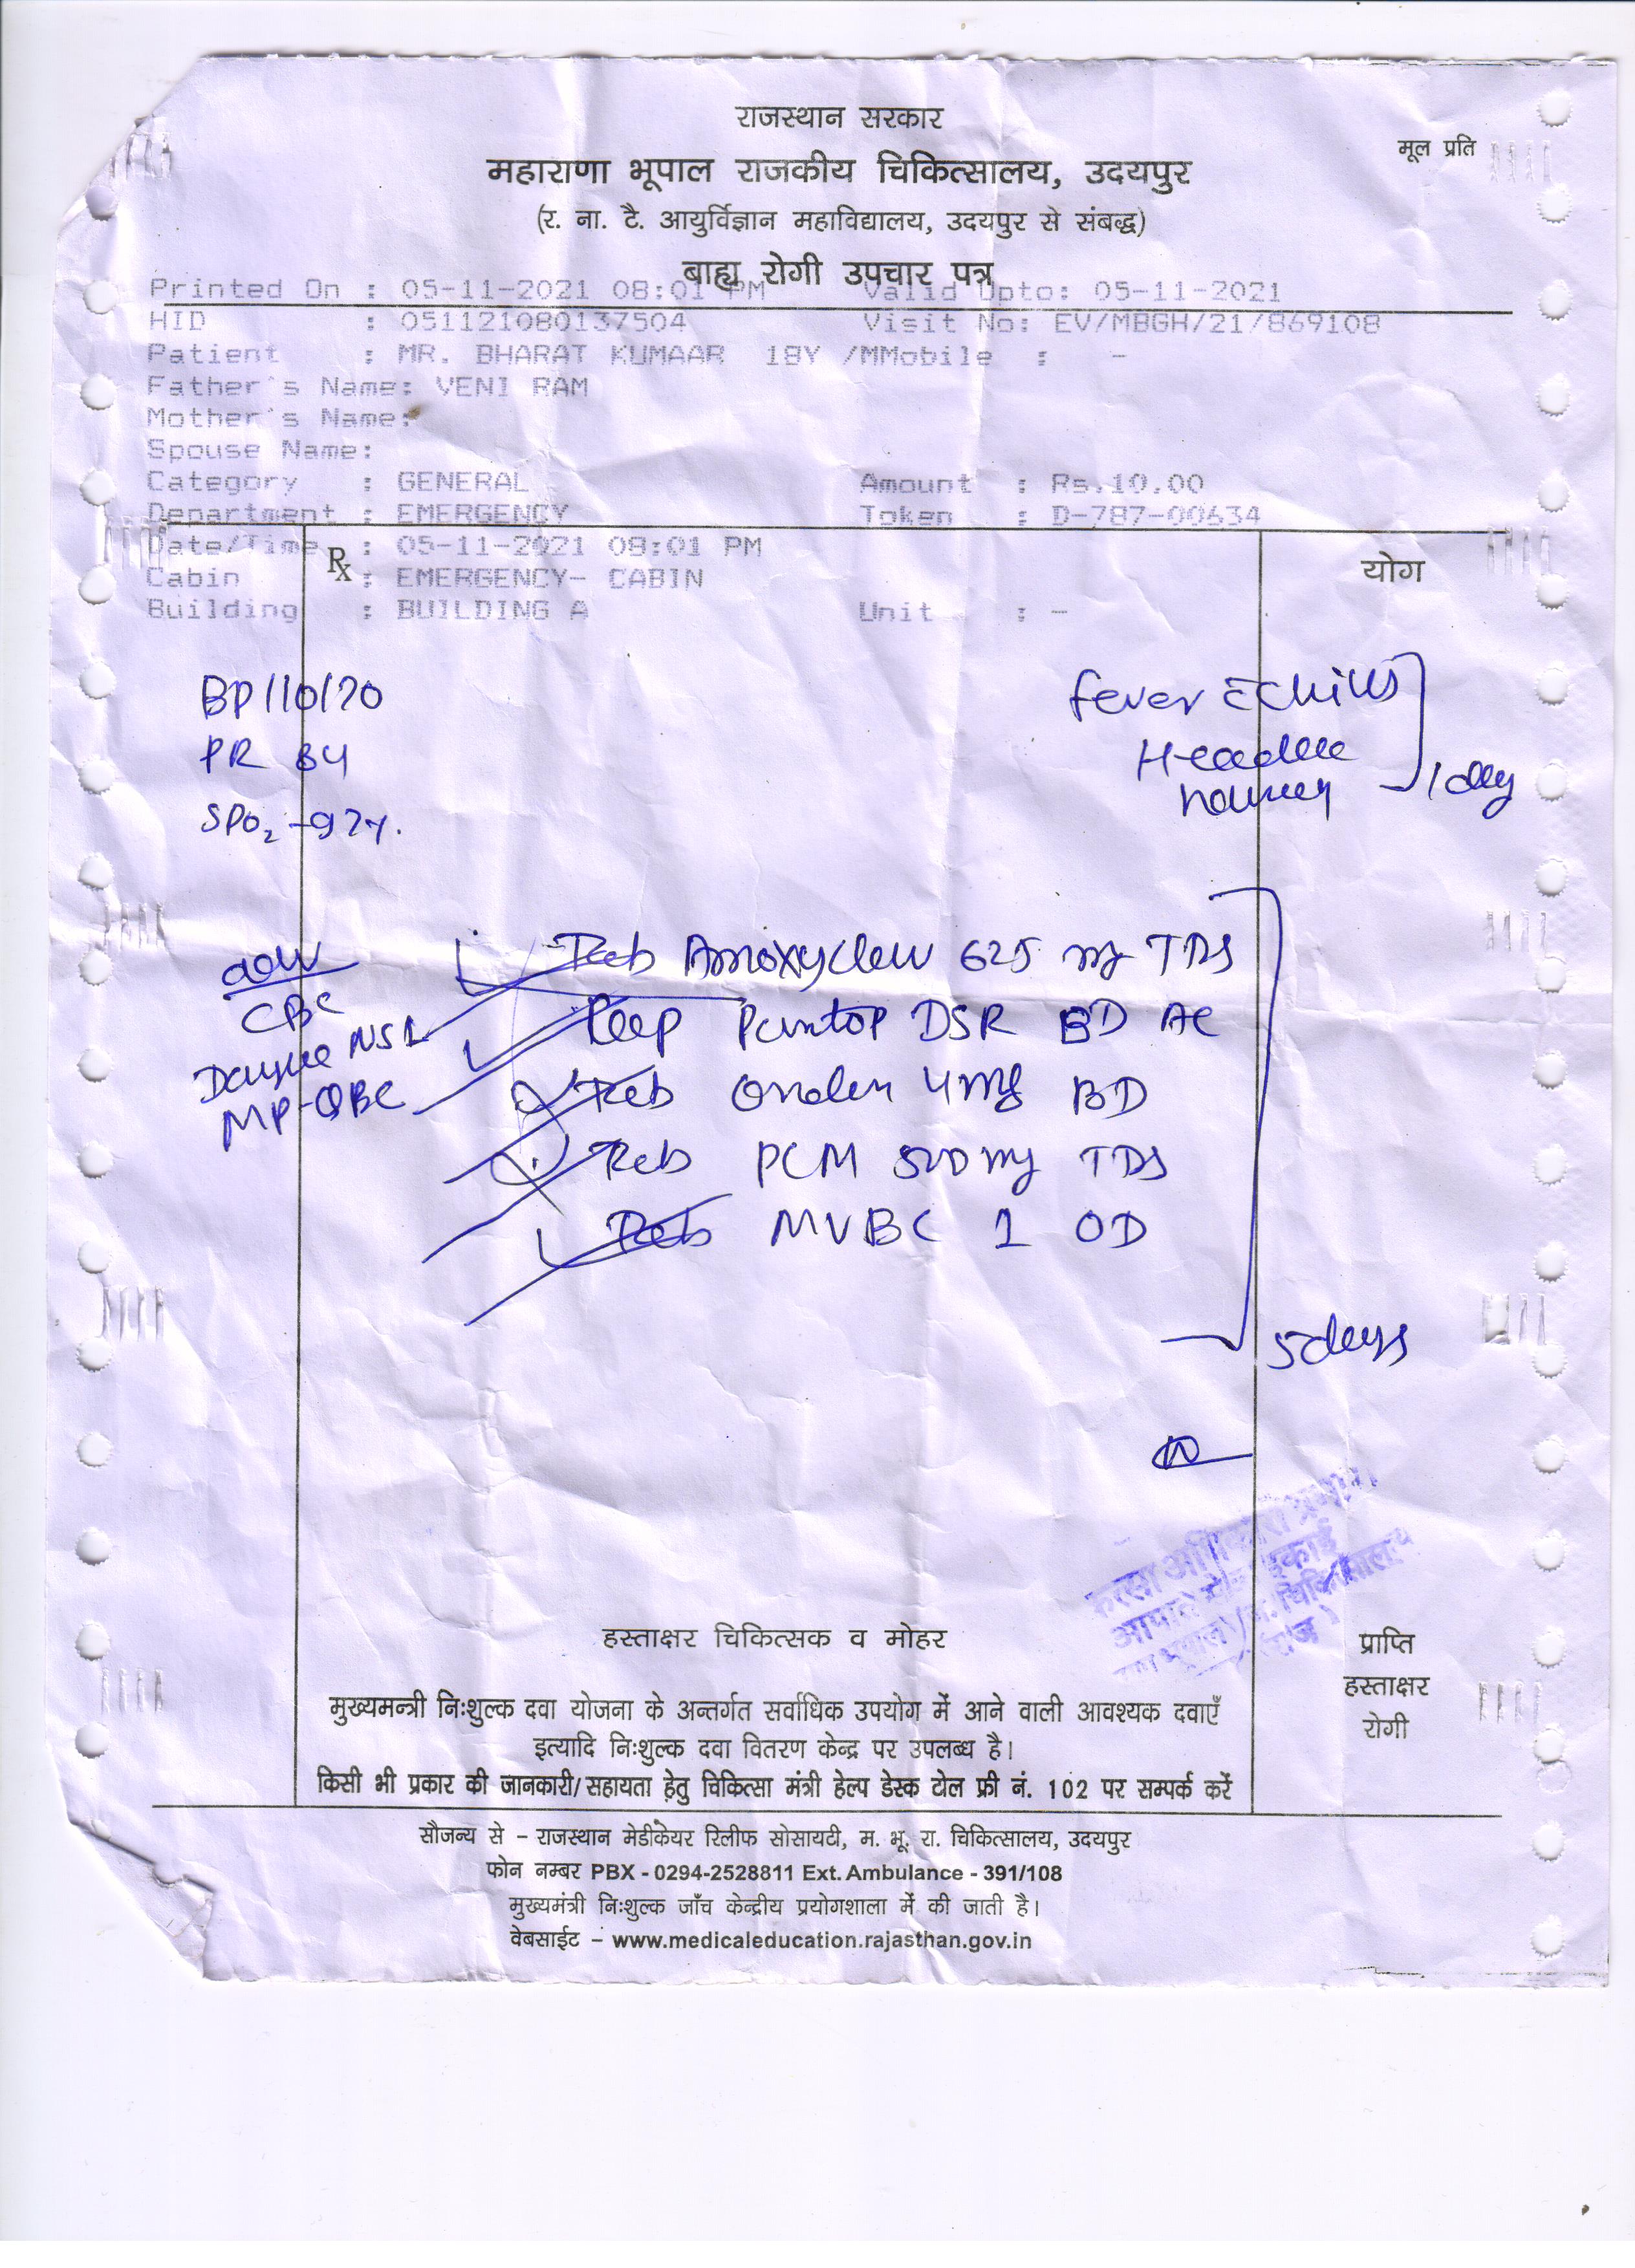 राजस्थान सरकार
मूल प्रति
महाराणा भूपाल राजकीय चिकित्सालय, उदयपुर
(र. ना. टै. आयुर्विज्ञान महाविद्यालय, उदयपुर से संबद्ध)
बाह्य रोगी उपचार पत्र
Printed On : 05-11-2021 08:01 PM Valid Upto: 05-11-2021
HID : 051121080137504 Visit No: EV/MBGH/21/869108
Patient : MR. BHARAT KUMAAR 18Y /MMobile : -
Father's Name: VENI RAM
Mother's Name:
Spouse Name:
Category : GENERAL Amount : Rs.10.00
Department : EMERGENCY Token : D-787-00634
Date/Time : 05-11-2021 08:01 PM
Rx
योग
Cabin : EMERGENCY- CABIN
Building : BUILDING A Unit : -
BP 110/70
fever c chills
PR 84
Headache
1 day
SPO2 - 97%.
Tab Amoxyclav 625 mg TDS
CBC
Dengue NS1
Cap Pantop DSR BD AC
MP-QBC
Tab Ondem 4mg BD
Tab PCM 500mg TDS
Tab MVBC 1 OD
5 days
आपात इकाई
हस्ताक्षर चिकित्सक व मोहर
प्राप्ति
हस्ताक्षर
रोगी
मुख्यमन्त्री निःशुल्क दवा योजना के अन्तर्गत सर्वाधिक उपयोग में आने वाली आवश्यक दवाएँ
इत्यादि निःशुल्क दवा वितरण केन्द्र पर उपलब्ध है।
किसी भी प्रकार की जानकारी/सहायता हेतु चिकित्सा मंत्री हेल्प डेस्क टोल फ्री नं. 102 पर सम्पर्क करें
सौजन्य से - राजस्थान मेडीकेयर रिलीफ सोसायटी, म. भू. रा. चिकित्सालय, उदयपुर
फोन नम्बर PBX - 0294-2528811 Ext. Ambulance - 391/108
मुख्यमंत्री निःशुल्क जाँच केन्द्रीय प्रयोगशाला में की जाती है।
वेबसाईट - www.medicaleducation.rajasthan.gov.in